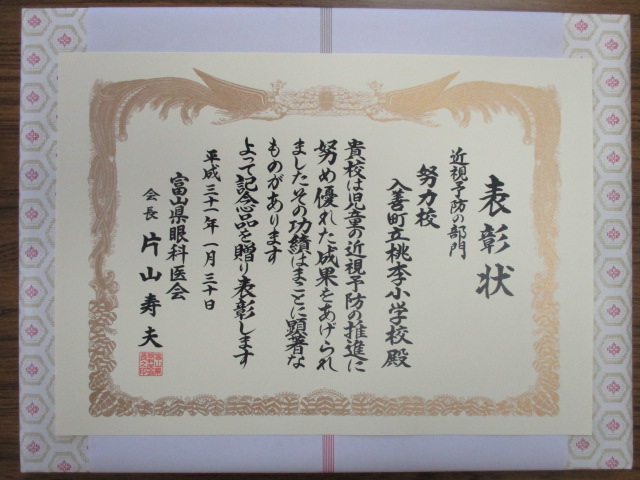 表彰状
近視予防の部門
努力校
入善町立桃李小学校殿
貴校は児童の近視予防の推進に
努め優れた成果をあげられ
ましたその功績はまことに顕著な
ものがあります
よって記念品を贈り表彰します
平成三十一年一月三十日
富山県眼科医会
会長 片山寿夫